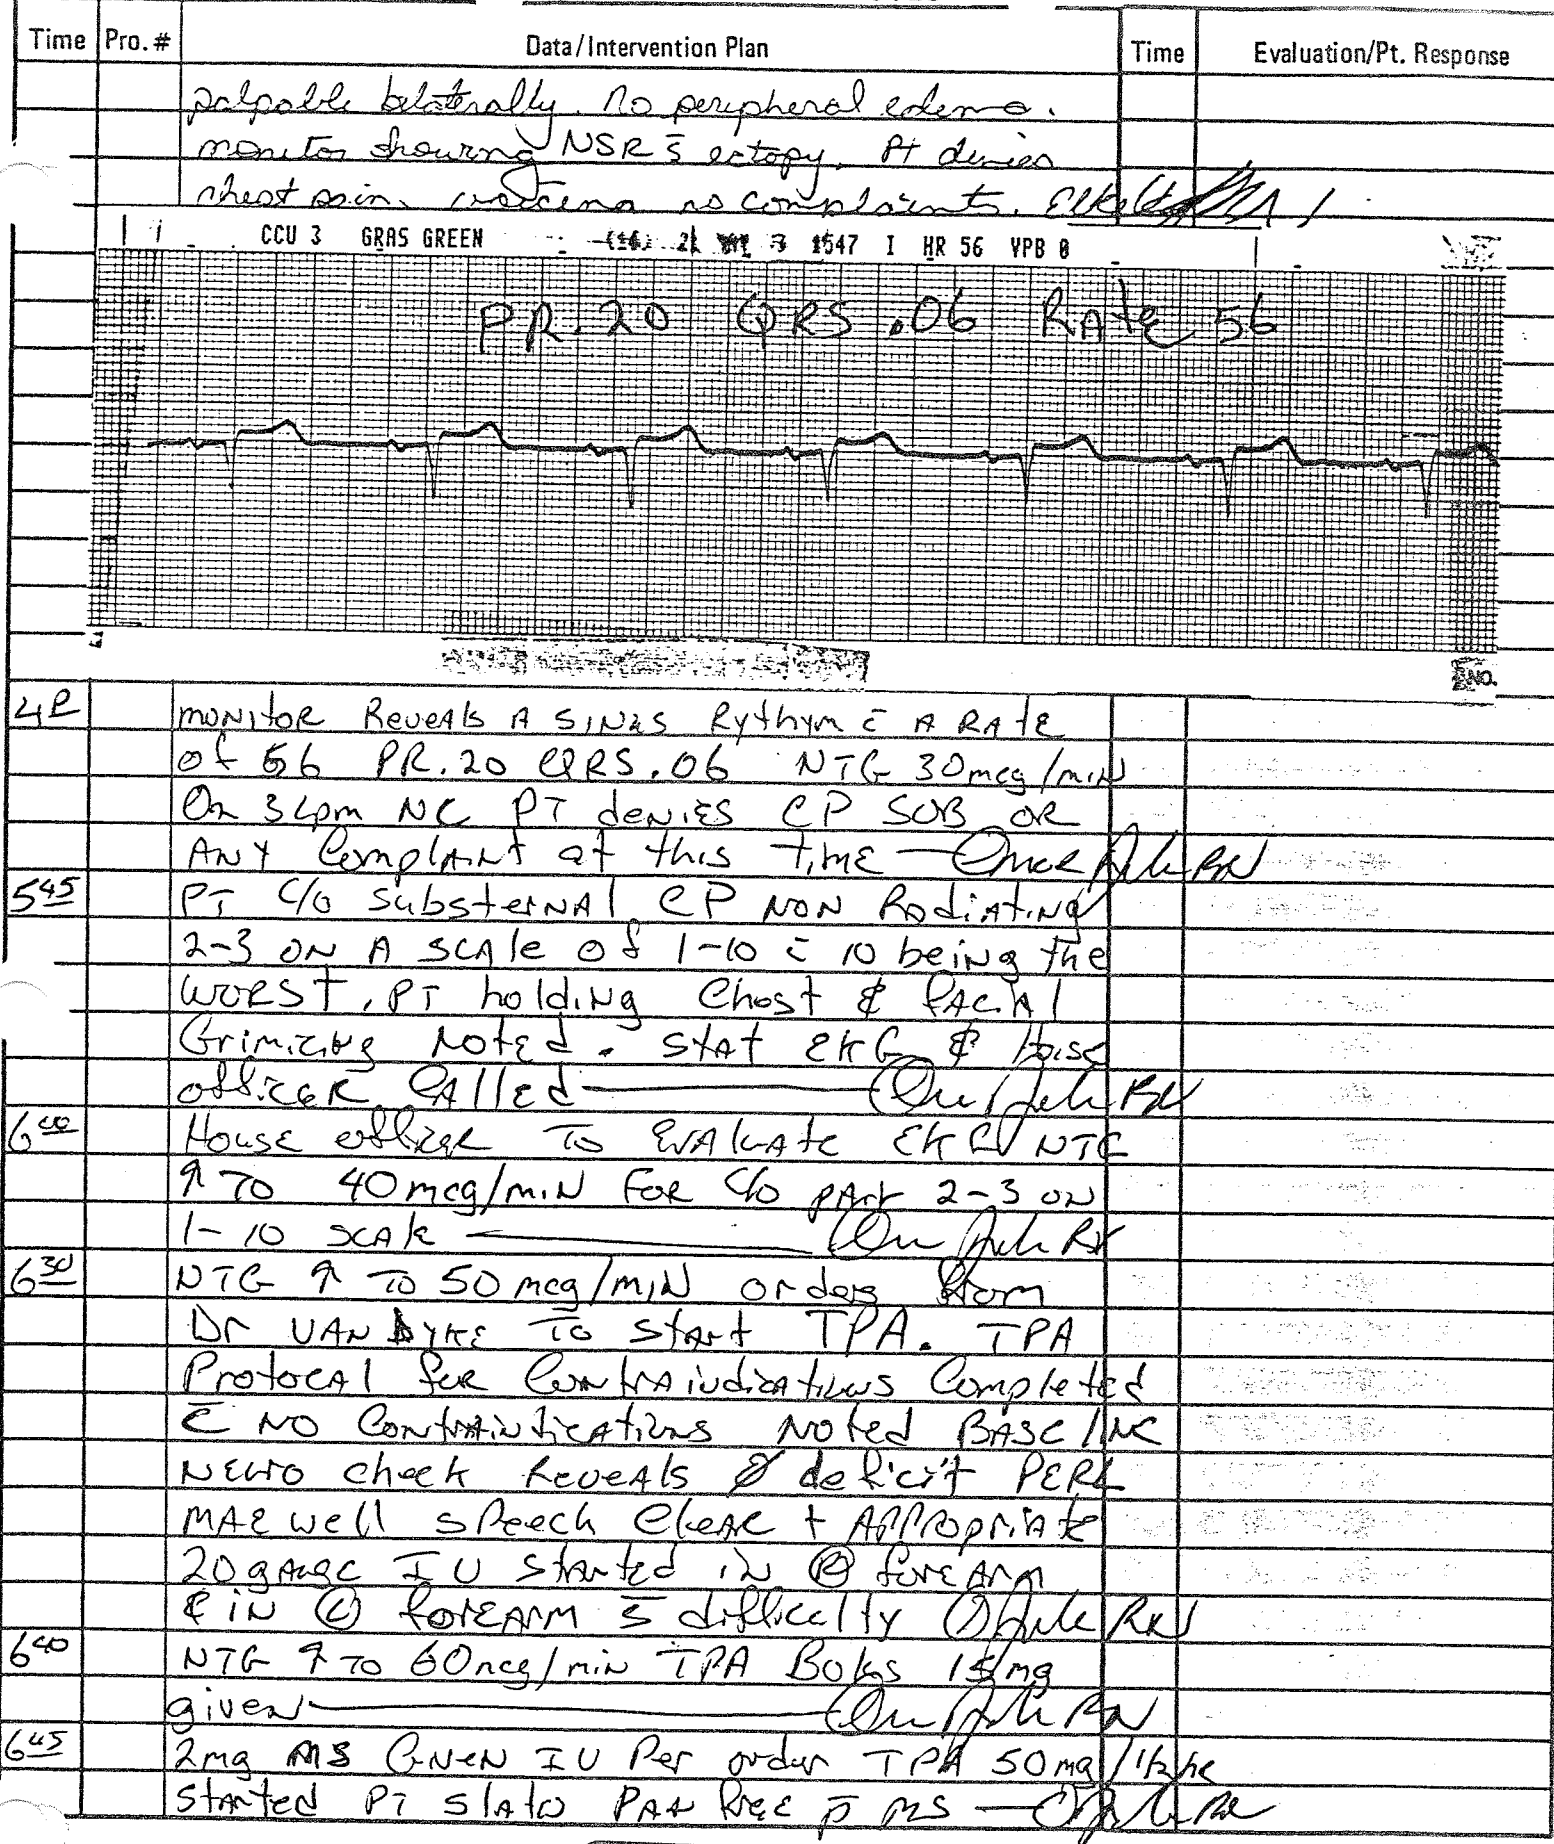 Time Pro.# Data/Intervention Plan Time Evaluation/Pt. Response
palpable bilaterally. No peripheral edema.
monitor showing NSR s̄ ectopy. Pt denies
chest pain. no complaints.
CCU 3 GRAS GREEN 1547 I HR 56 VPB 0
PR .20 QRS .06 RAtE 56
NO.
4P MONItOR ReveAls A SINUS Rythym c̄ A RAtE
of 56 PR.20 QRS.06 NTG 30mcg/miN
On 3Lpm NC PT deNiES CP SOB OR
ANY ComplAiNt at this TimE RN
5 45 PT C/O SubsterNAl CP NON RadiAtiNg
2-3 ON A SCAle of 1-10 c̄ 10 beiNg the
WORST. PT holdiNg Chest & fAciAl
GrimiciNg Noted. StAt EKG & House
officer CAlled RN
6 00 House officer To EVAluAte EKG NTG
↑ TO 40 mcg/miN FOR C/O pAiN 2-3 ON
1-10 SCAle RN
6 30 NTG ↑ TO 50 mcg/miN orders from
Dr VAN DYKE To StArt TPA. TPA
ProtocAl for CoNtrAiNdicAtioNs Completed
c̄ NO CoNtrAiNdicAtioNs Noted BASeliNe
Neuro check ReveAls Ø deficit PERL
MAE well Speech CleAr + AppropriAte
20 gAuge IV stArted iN Ⓡ foreArm
& iN Ⓛ foreArm s̄ difficulty RN
6 40 NTG ↑ TO 60 mcg/miN TPA Bolus 15 mg
giveN RN
6 45 2mg MS GiveN IV Per order TPA 50 mg/1hr
StArted PT StAtes PAiN free p̄ MS RN